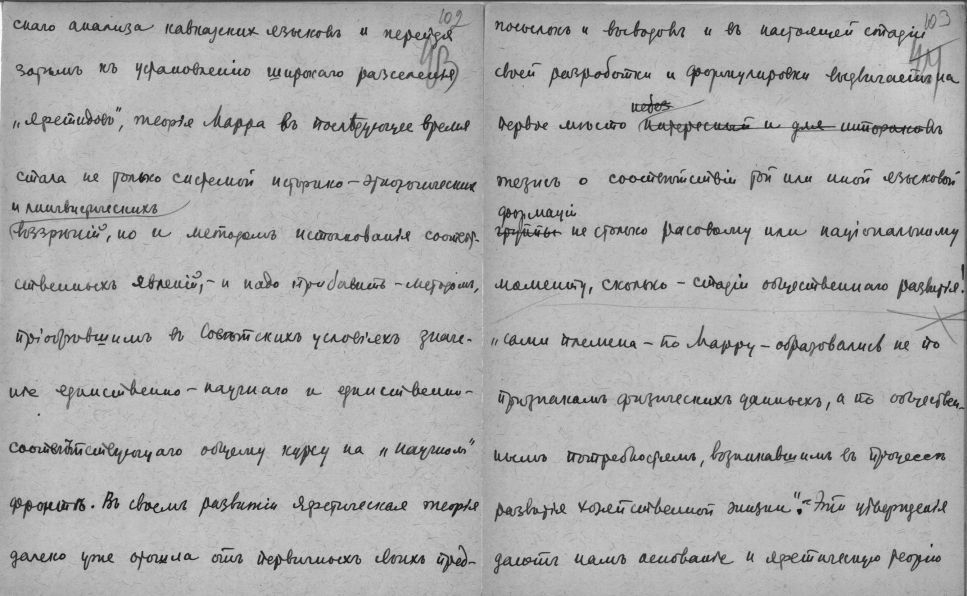 102
скаго анализа кавказскихъ языковъ и перейдя
затѣмъ къ установленію широкаго разселенія
„яфетидовъ“, теорія Марра въ послѣдующее время
стала не только системой историко-этнологическихъ
и лингвистическихъ
воззрѣній, но и методомъ истолкованія соотвѣт-
ственныхъ явленій, - и надо прибавить - методомъ,
пріобрѣвшимъ въ Совѣтскихъ условіяхъ значе-
ніе единственно-научнаго и единственно-
соотвѣтствующаго общему курсу на „научномъ“
фронтѣ. Въ своемъ развитіи яфетическая теорія
далеко уже отошла отъ первичныхъ своихъ пред-
103
44
посылокъ и выводовъ и въ настоящей стадіи
своей разработки и формулировки выдвигаетъ на
первое мѣсто интересный и для историковъ
тезисъ о соотвѣтствіи той или иной языковой
формаціи
группы не столько расовому или національному
моменту, сколько - стадіи общественнаго развитія!
„сами племена - по Марру - образовались не по
признакамъ физическихъ данныхъ, а по обществен-
нымъ потребностямъ, возникавшимъ въ процессѣ
развитія хозяйственной жизни“. - Эти утвержденія
даютъ намъ основаніе и яфетическую теорію